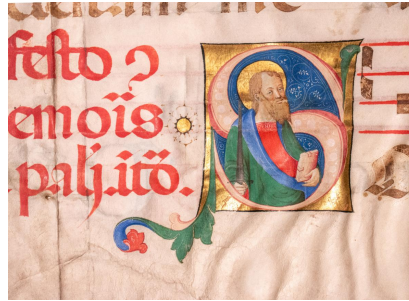 festo ꝯ
emoı̈s
palj.itō.
S